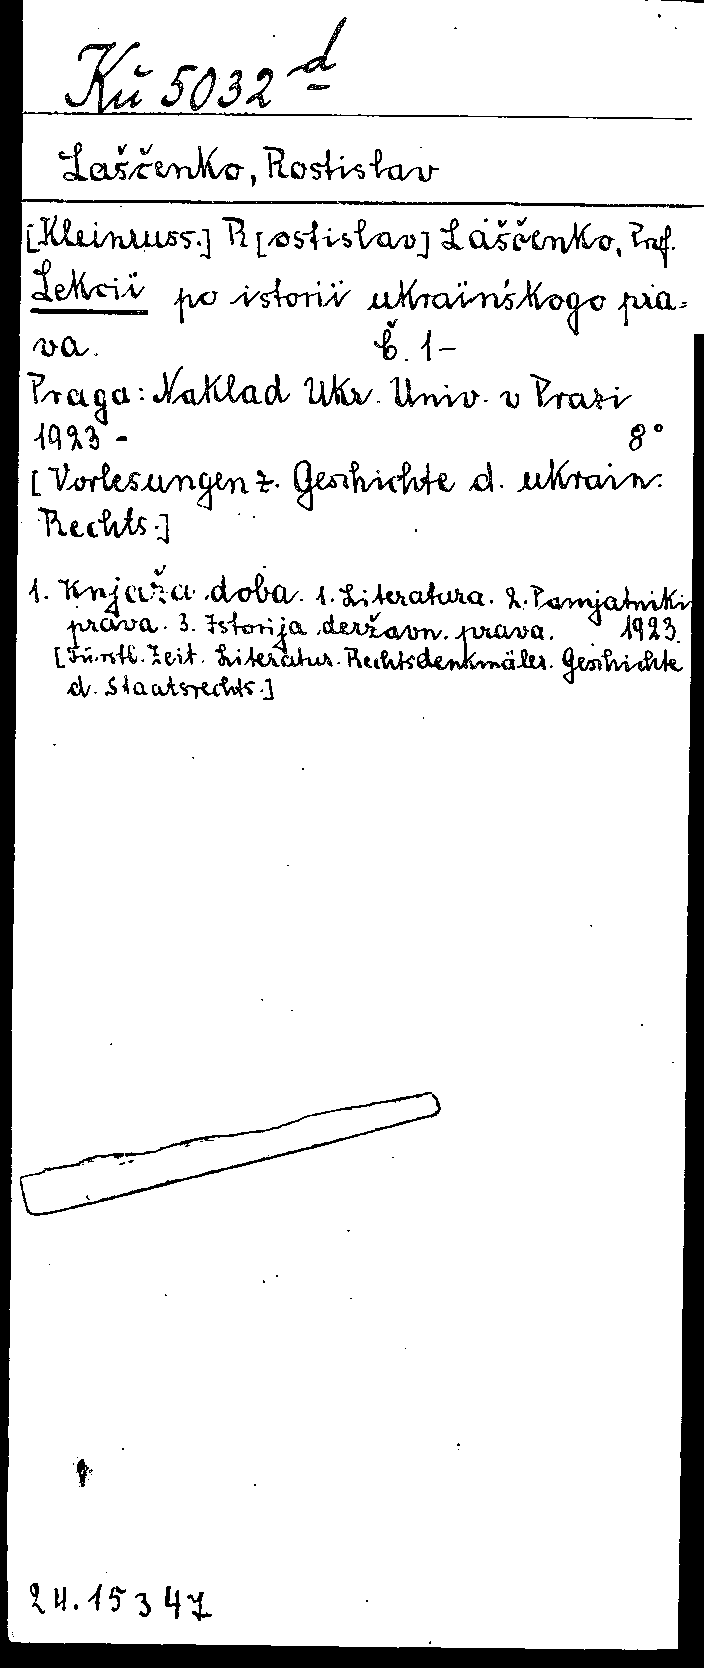 Kü 5032 d
Laščenko, Rostislav
[Kleinruss.] R[ostislav] Laščenko, Prof.
Lekcii po istorii ukraïńskogo pra=
va. Č. 1-
Praga: Naklad Ukr. Univ. v Prazi
1923- 8°
[Vorlesungen z. Geschichte d. ukrain.
Rechts.]
1. Knjaža doba. 1. Literatura. 2. Pamjatniki
prava. 3. Istorija deržavn. prava. 1923.
[Fürstl. Zeit. Literatur. Rechtsdenkmäler. Geschichte
d. Staatsrechts.]
24.15347